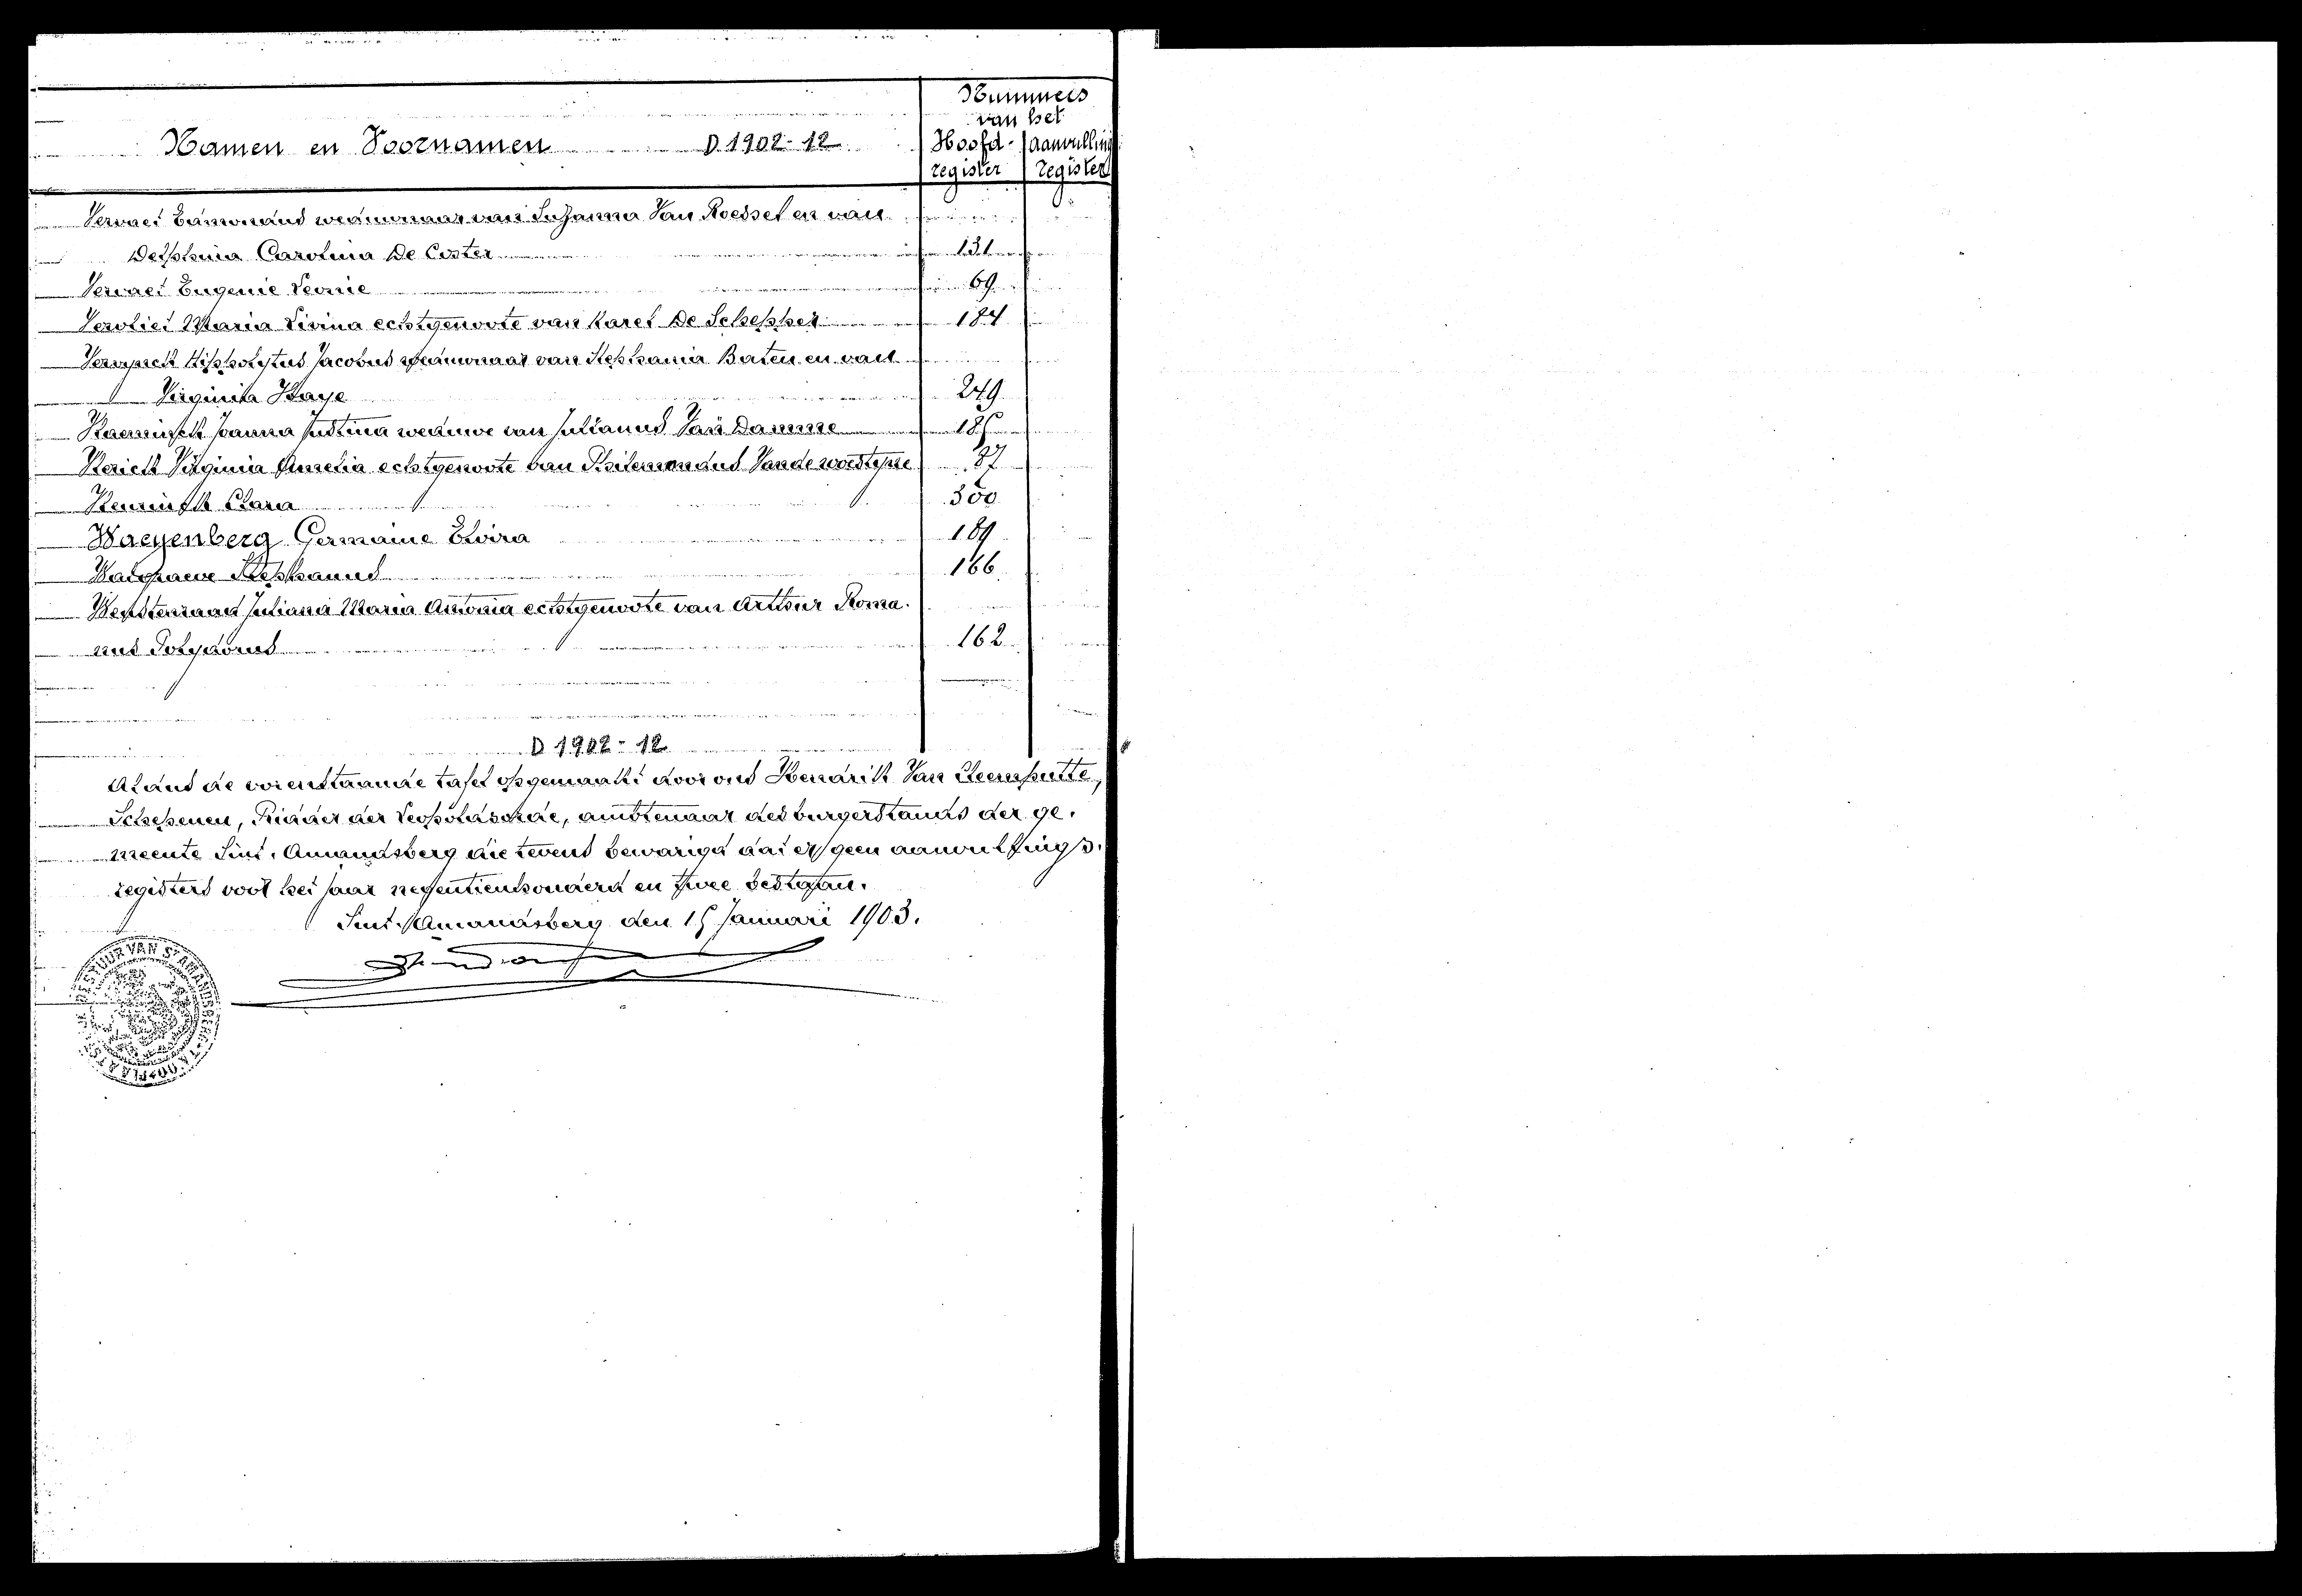 Nummers
van het
Namen en Voornamen D 1902-12 Hoofd- aanvulling
register register
Vervaet Edmondus weduwnaar van Suzanna Van Roessel en van
Delphina Carolina De Coster 131
Vervaet Eugenie Leonie 69
Vervliet Maria Livina echtgenoote van Karel De Schepper 184
Hippolytus Jacobus weduwnaar van Stephania Baten en van
Virginia Haye 249
Joanna Justina weduwe van Julianus Van Damme 185
Virginia Amelia echtgenoote van Philemondus Vandewoestyne 87
Clara 300
Waeyenberg Germaine Elvira 189
Walgraeve Stephanus 166
Juliana Maria Antonia echtgenoote van Arthur Roma-
nus Polydorus 162
D 1902-12
Aldus de voorenstaande tafel opgemaakt door ons Hendrik Van
Schepenen, Ridder der Leopoldsorde, ambtenaar des burgerstands der ge-
meente Sint-Amandsberg die tevens bevestigd dat er geen aanvullings-
registers voor het jaar negentienhonderd en twee bestaan.
Sint-Amandsberg den 15 Januari 1903.
BESTUUR VAN ST AMANDSBERG